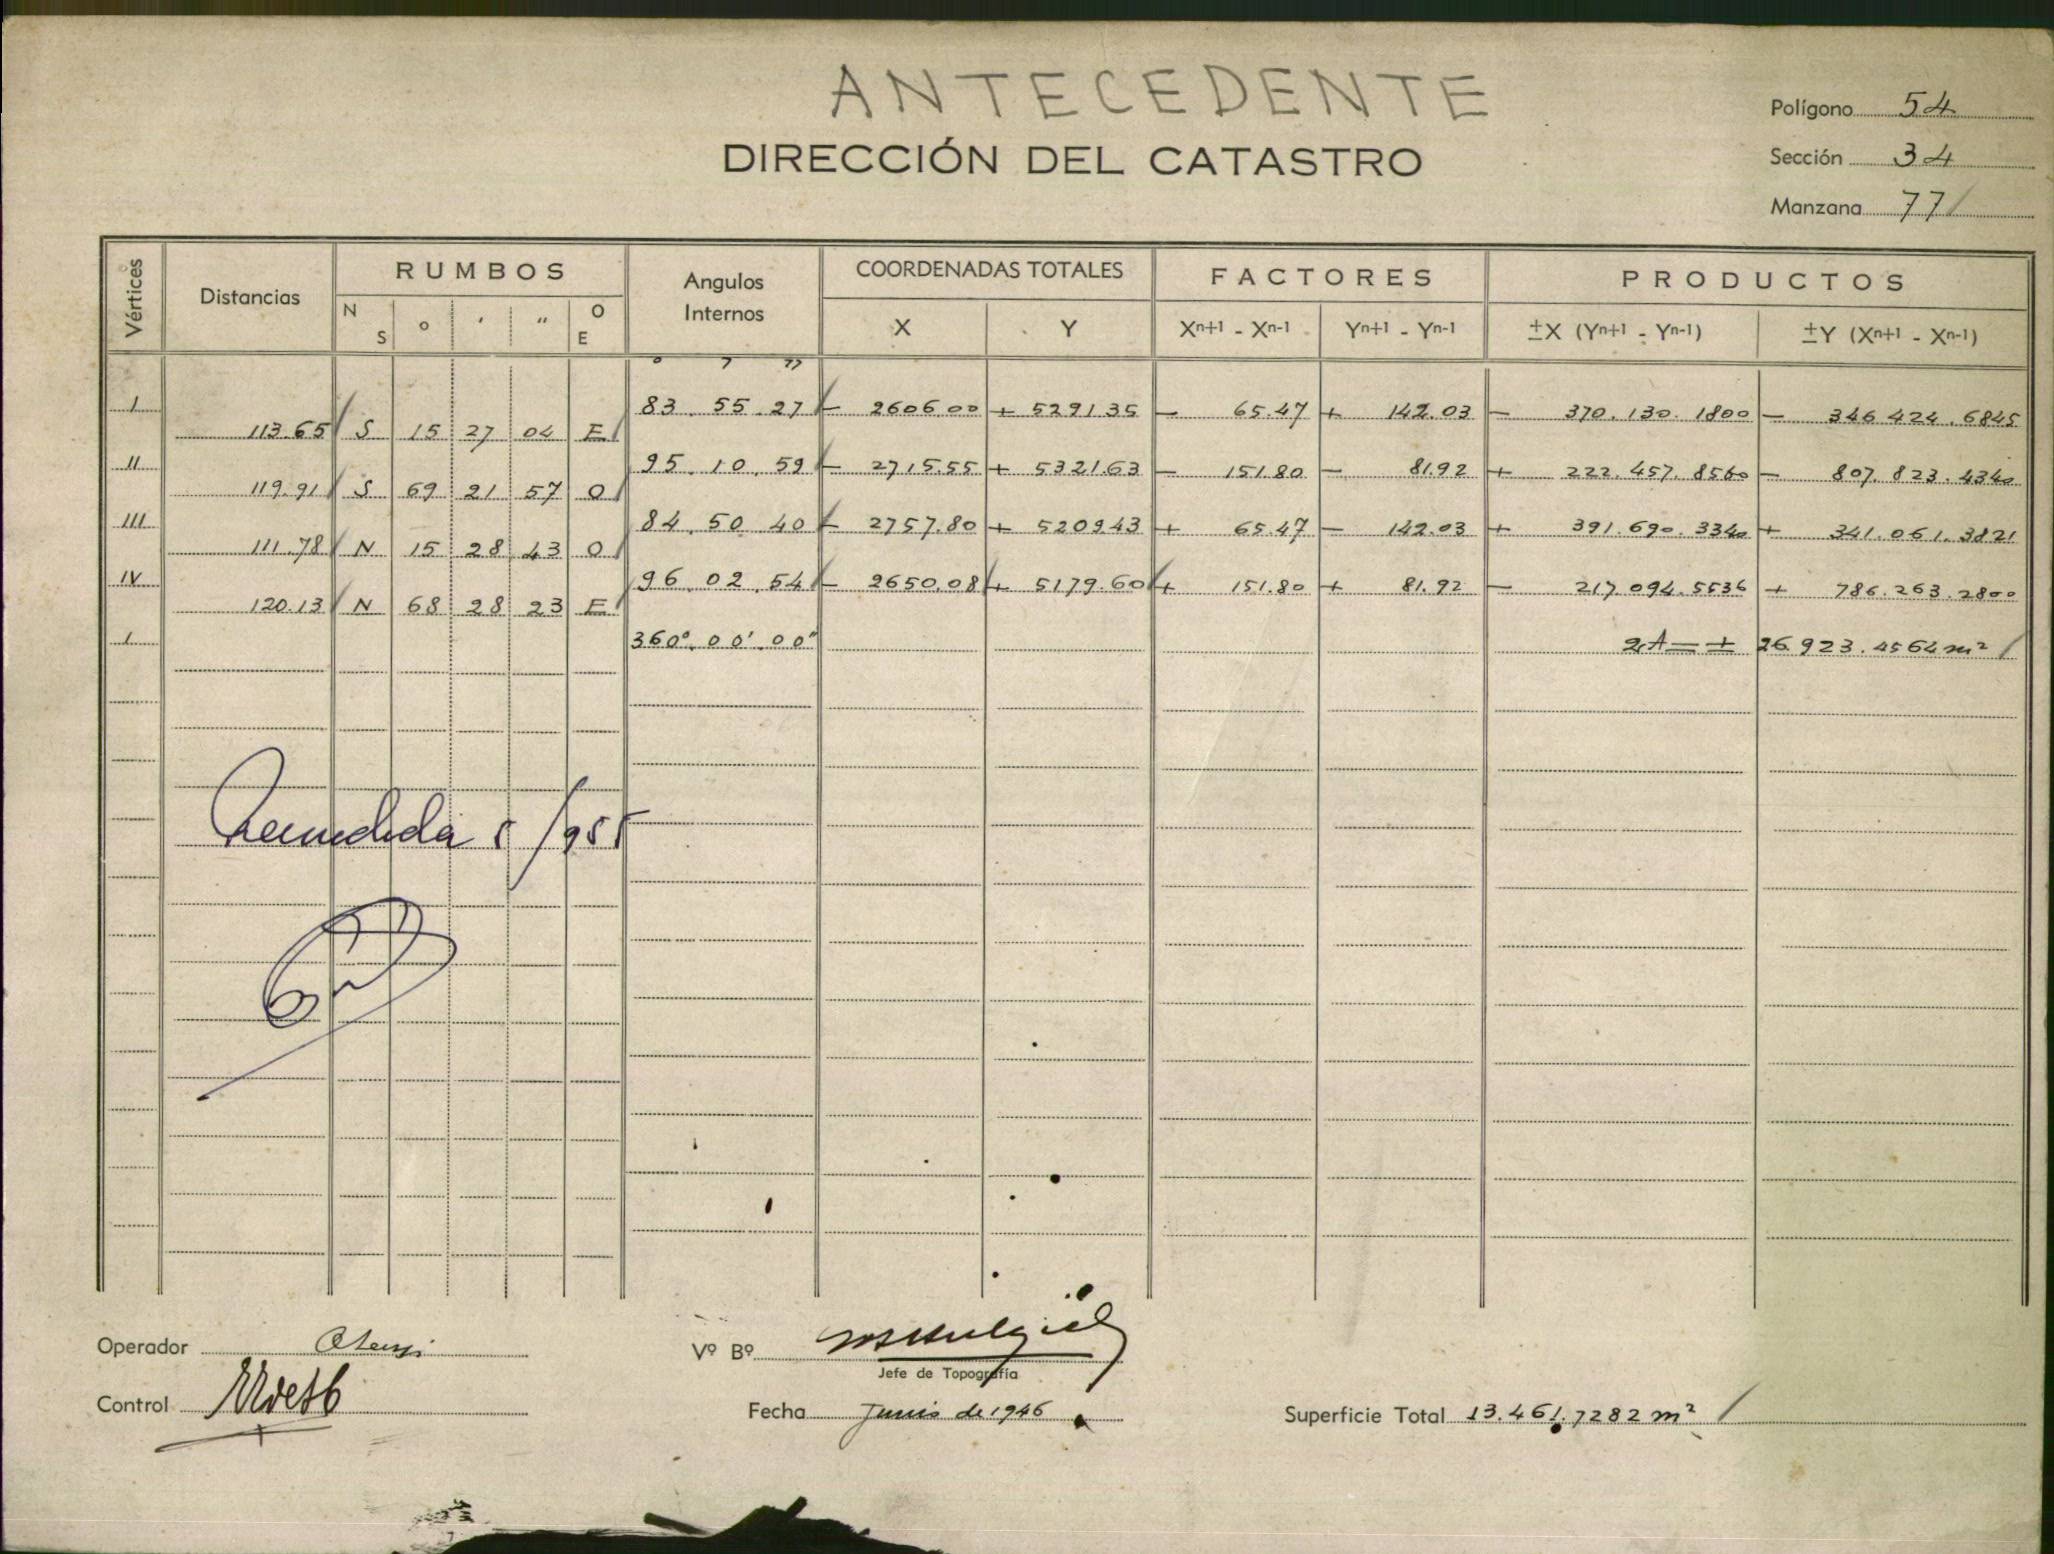 ANTECEDENTE
DIRECCIÓN DEL CATASTRO
Polígono 54
Sección 34
Manzana 77
Vértices Distancias RUMBOS Angulos Internos COORDENADAS TOTALES FACTORES PRODUCTOS
N S ° ' " O E X Y Xn+1 - Xn-1 Yn+1 - Yn-1 ±X (Yn+1 - Yn-1) ±Y (Xn+1 - Xn-1)
° ' "
I 83. 55. 27 - 2606.00 + 5291.35 - 65.47 + 142.03 - 370.130.1800 - 346.424.6845
113.65 S 15 27 04 E
II 95. 10. 59 - 2715.55 + 5321.63 - 151.80 - 81.92 + 222.457.8560 - 807.823.4340
119.91 S 69 21 57 O
III 84. 50 40 - 2757.80 + 5209.43 + 65.47 - 142.03 + 391.690.3340 + 341.061.3821
111.78 N 15 28 43 O
IV 96. 02. 54 - 2650.08 + 5179.60 + 151.80 + 81.92 - 217.094.5536 + 786.263.2800
120.13 N 68 28 23 E
I 360°.00'.00" 2A = ± 26.923.4564 m²
Remedida 5/955
Operador
Control
Vº Bº
Jefe de Topografía
Fecha Junio de 1946
Superficie Total 13.461.7282 m²